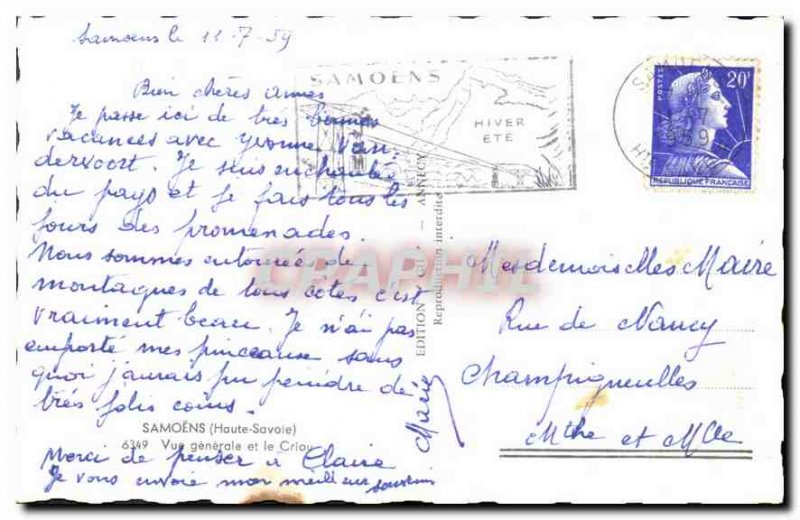 Samoens le 11-7-59
Bien chères amies
Je passe ici de très bonnes
vacances avec Yvonne Van
dervoort. Je suis enchantée
du pays et je fais tous les
jours des promenades.
Nous sommes entourées de
montagnes de tous côtés c'est
vraiment beau. Je n'ai pas
emporté mes pinceaux sans
quoi j'aurais pu peindre de
très jolis coins.
SAMOËNS (Haute-Savoie)
6349 Vue générale et le Criou
Merci de penser à Claire
Je vous envoie mon meilleur souvenir
Marie
SAMOËNS
HIVER
ETE
EDITION ANNECY
Reproduction interdite
CRAPHIL
POSTES
20F
REPUBLIQUE FRANÇAISE
Mesdemoiselles Maire
Rue de Nancy
Champigneulles
Mthe et Mlle